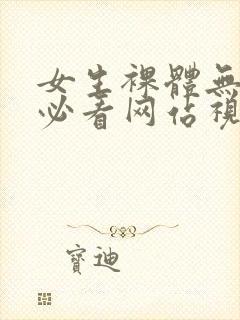 女生裸體無
必看网佔視
寶迪